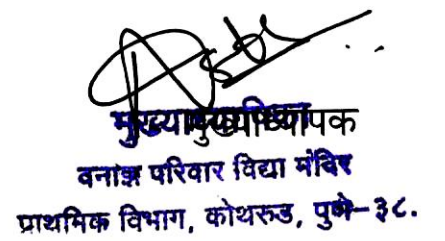 मुख्याध्यापक
वनाझ परिवार विद्या मंदिर
प्राथमिक विभाग, कोथरुड, पुणे-३८.